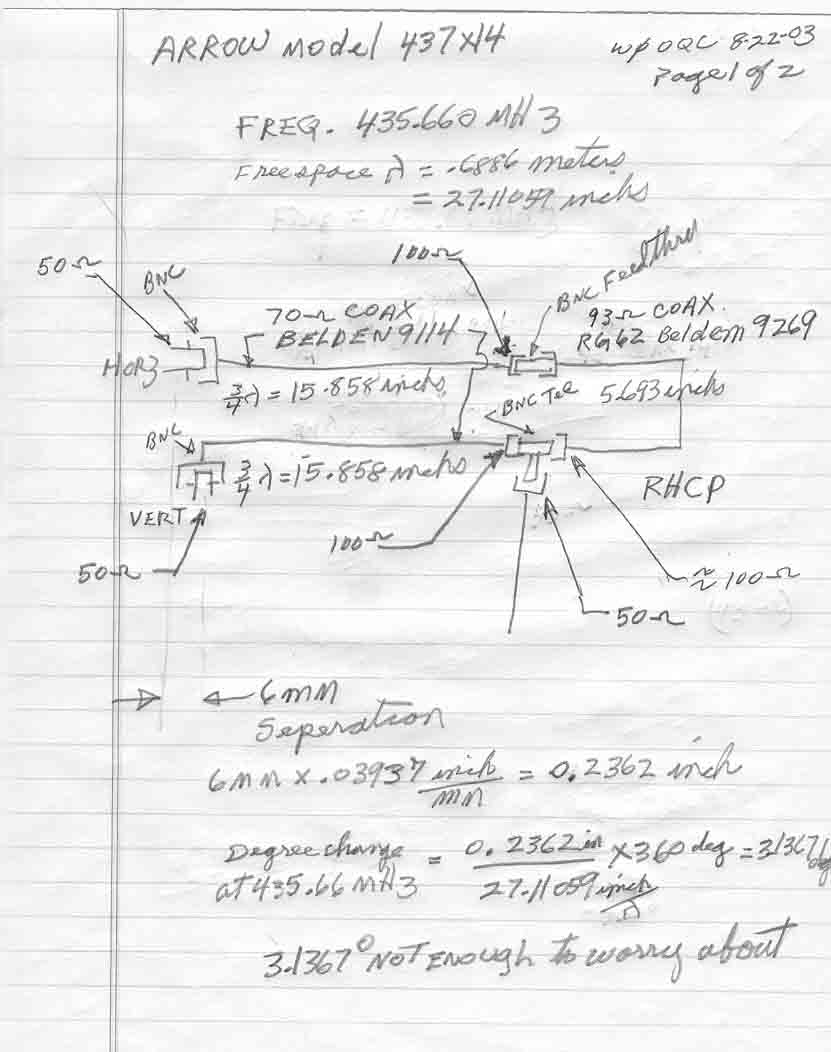 ARROW Model 437X14
WP0QC 8-22-03
Page 1 of 2
FREQ. 435.660 MHz
Freespace λ = .6886 meters
= 27.11059 inchs
50Ω
BNC
100Ω
BNC Feedthru
70Ω COAX
BELDEN 9114
93Ω COAX
RG62 Belden 9269
HORz
3/4 λ = 15.858 inchs
BNC Tee
5.693 inchs
BNC
3/4 λ = 15.858 inchs
RHCP
VERT
100Ω
50Ω
≈ 100Ω
50Ω
6MM
Seperation
6MM X .03937 inch/MM = 0.2362 inch
Degree change at 435.66 MHz = 0.2362 in / 27.11059 inch/λ X 360 deg = 3.1367 deg
3.1367° NOT ENOUGH to worry about